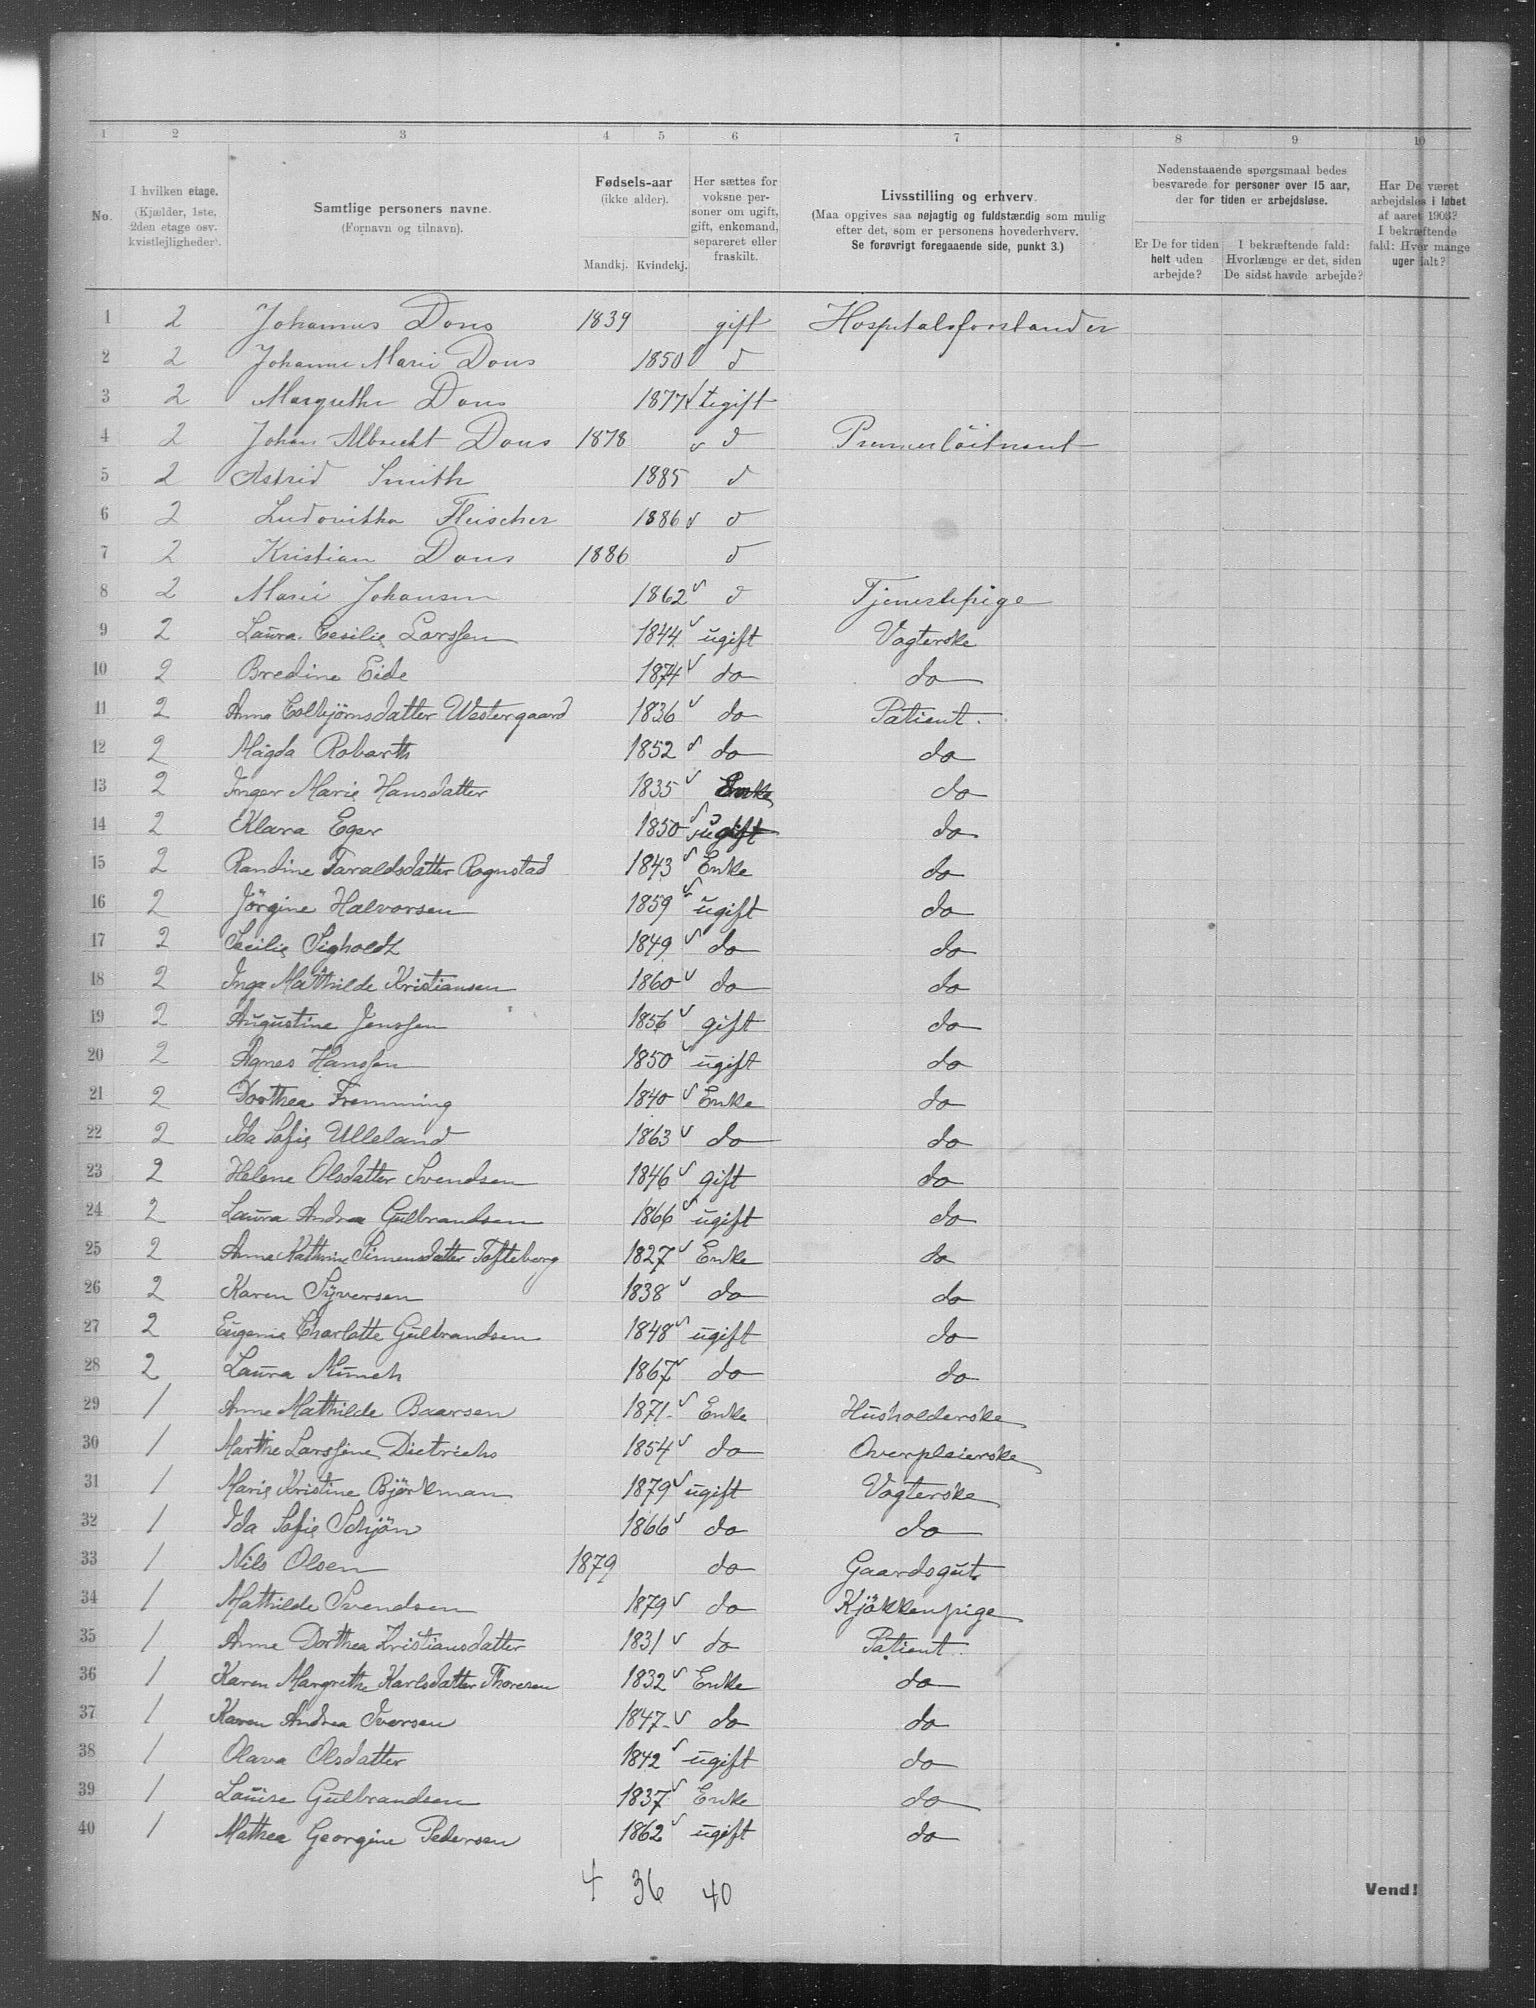 1 2 3 4 5 6 7 8 9 10
No.
I hvilken etage.
(Kjælder, 1ste, 2den etage osv. kvistlejligheder).
Samtlige personers navne.
(Fornavn og tilnavn).
Fødsels-aar
(ikke alder).
Mandkj. Kvindekj.
Her sættes for voksne personer om ugift, gift, enkemand, separeret eller fraskilt.
Livsstilling og erhverv.
(Maa opgives saa nøjagtig og fuldstændig som mulig efter det, som er personens hovederhverv.
Se forøvrigt foregaaende side, punkt 3.)
Nedenstaaende spørgsmaal bedes besvarede for personer over 15 aar, der for tiden er arbejdsløse.
Er De for tiden helt uden arbejde?
I bekræftende fald: Hvorlænge er det, siden De sidst havde arbejde?
Har De været arbejdsløs i løbet af aaret 1903? I bekræftende fald: Hvor mange uger ialt?
1 2 Johannes Dons 1839 gift Hospitalsforstander
2 2 Johanne Marie Dons 1850 d
3 2 Margrethe Dons 1877 ugift
4 2 Johan Albrecht Dons 1878 d Premierlöitnant
5 2 Astrid Smith 1885 d
6 2 Ludovitka Fleischer 1886 d
7 2 Kristian Dons 1886 d
8 2 Marie Johansen 1862 d Tjenestepige
9 2 Laura Cesilie Larssen 1844 ugift Vogterske
10 2 Bredine Eide 1874 do do
11 2 Anna Colbjörnsdatter Westergaard 1836 do Patient.
12 2 Magda Robarth 1852 do do
13 2 Inger Marie Hansdatter 1835 Enke do
14 2 Klara Eger 1850 ugift do
15 2 Randine Taraldsdatter Rognstad 1843 Enke do
16 2 Jörgine Halvorsen 1859 ugift do
17 2 Cecilie Sigholdt 1849 do do
18 2 Inga Mathilde Kristiansen 1860 do do
19 2 Augustine Jenssen 1856 gift do
20 2 Agnes Hanssen 1850 ugift do
21 2 Dorthea Fremming 1840 Enke do
22 2 Ida Sofie Ulleland 1863 do do
23 2 Helene Olsdatter Svendsen 1846 gift do
24 2 Laura Andrea Gulbrandsen 1866 ugift do
25 2 Anne Kathrine Simensdatter Tofteberg 1827 Enke do
26 2 Karen Syversen 1838 do do
27 2 Eugenie Charlotte Gulbrandsen 1848 ugift do
28 2 Laura Munch 1867 do do
29 1 Anne Mathilde Baarsen 1871 Enke Husholderske
30 1 Marthe Larssine Dietrichs 1854 do Overpleierske
31 1 Marie Kristine Björkman 1879 ugift Vogterske
32 1 Ida Sofie Schjön 1866 do do
33 1 Nils Olsen 1879 do Gaardsgut.
34 1 Mathilde Svendsen 1879 do Kjökkenpige
35 1 Anne Dorthea Kristiansdatter 1831 do Patient.
36 1 Karen Margrethe Karlsdatter Thoresen 1832 Enke do
37 1 Karen Andrea Iversen 1847 do do
38 1 Olava Olsdatter 1842 ugift do
39 1 Louise Gulbrandsen 1837 Enke do
40 1 Mathea Georgine Pedersen 1862 ugift do
4 36 40
Vend!